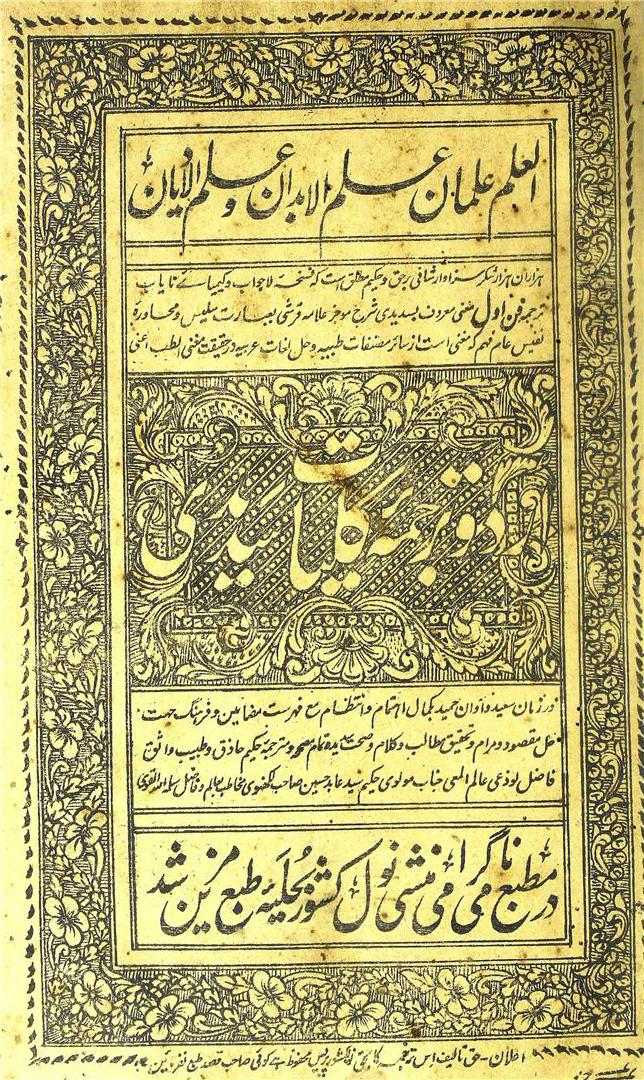 العلم علمان علم الابدان و علم الادیان
ہزاران ہزار شکر سزاوار شافی برحق و حکیم مطلق ہست کہ نسخۂ لاجواب و کیمیائے نایاب
ترجمۂ فن اول مغنی معروف بسدیدی شرح موجز علامہ قرشی بعبارت سلیس و محاورۂ
نفیس عام فہم کہ مغنی است از سائر مصنفات طبیہ و حل لغات عربیہ در حقیقت مغنی الطب اعنی
اردو ترجمہ کلیات سدیدی
در زمان سعید و آوان حمید بکمال اہتمام و انتظام مع فہرست مضامین و فرہنگ جہت
حل مقصود و مرام و تحقیق مطالب و کلام و صحت تمام و ترجمۂ حکیم حاذق و طبیب واثق
فاضل لوذعی عالم المعی جناب مولوی حکیم سید عابد حسین صاحب لکھنوی مخاطب بعالم و فاضل سلمہ اللہ القوی
در مطبع نامی گرامی منشی نول کشور بحلیۂ طبع مزین شد
اعلان - حق تالیف اس ترجمہ کا بحق نولکشور پریس محفوظ ہے کوئی صاحب قصد طبع نفرمائین